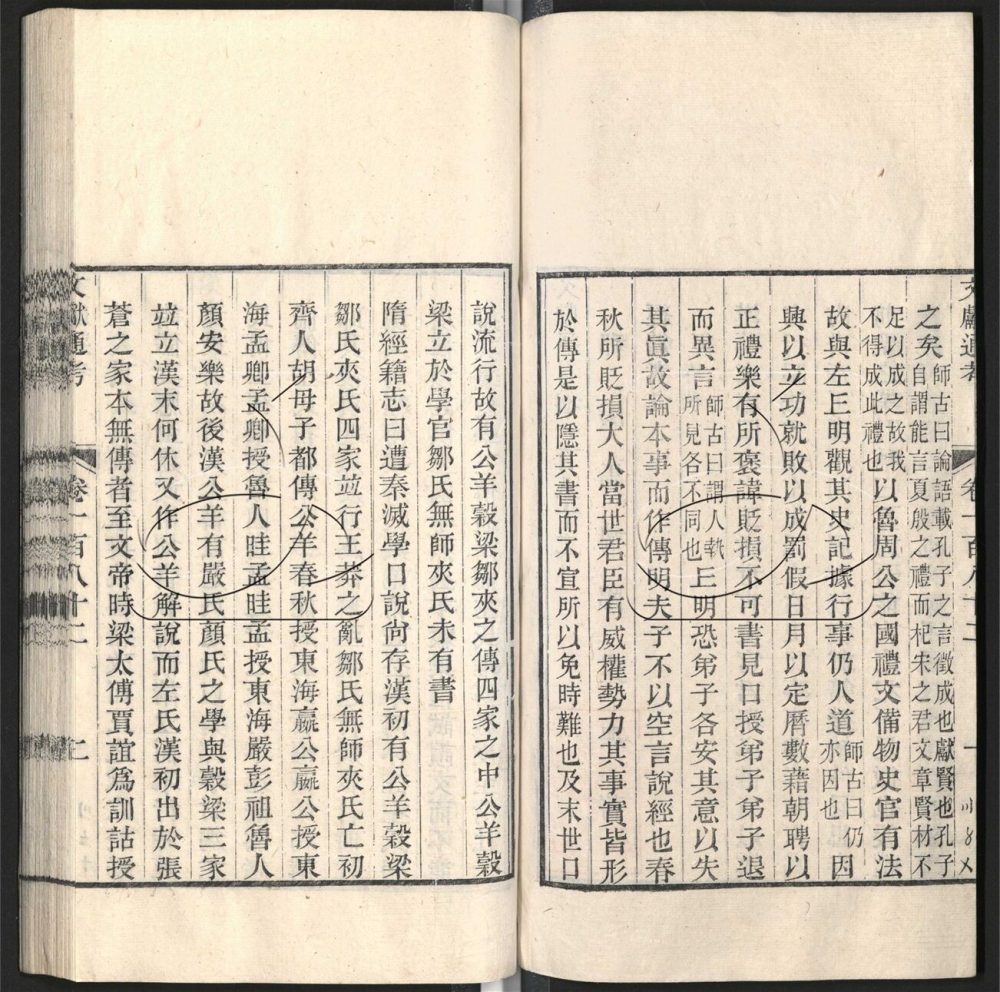 文獻通考　卷一百八十二　一
之矣師古曰論語載孔子之言徵成也獻賢也孔子
自謂能言夏殷之禮而杞宋之君文章賢材不
足以成之故我
不得成此禮也以魯周公之國禮文備物史官有法
故與左丘明觀其史記據行事仍人道師古曰仍
亦因也因
興以立功就敗以成罰假日月以定曆數藉朝聘以
正禮樂有所褒諱貶損不可書見口授弟子弟子退
而異言師古曰謂人執
所見各不同也丘明恐弟子各安其意以失
其眞故論本事而作傳明夫子不以空言說經也春
秋所貶損大人當世君臣有威權勢力其事實皆形
於傳是以隱其書而不宣所以免時難也及末世口
說流行故有公羊穀梁鄒夾之傳四家之中公羊穀
梁立於學官鄒氏無師夾氏未有書
隋經籍志曰遭秦滅學口說尙存漢初有公羊穀梁
鄒氏夾氏四家竝行王莽之亂鄒氏無師夾氏亡初
齊人胡母子都傳公羊春秋授東海嬴公嬴公授東
海孟卿孟卿授魯人眭孟眭孟授東海嚴彭祖魯人
顏安樂故後漢公羊有嚴氏顏氏之學與穀梁三家
竝立漢末何休又作公羊解說而左氏漢初出於張
蒼之家本無傳者至文帝時梁太傅賈誼爲訓詁授
文獻通考　卷一百八十二　二